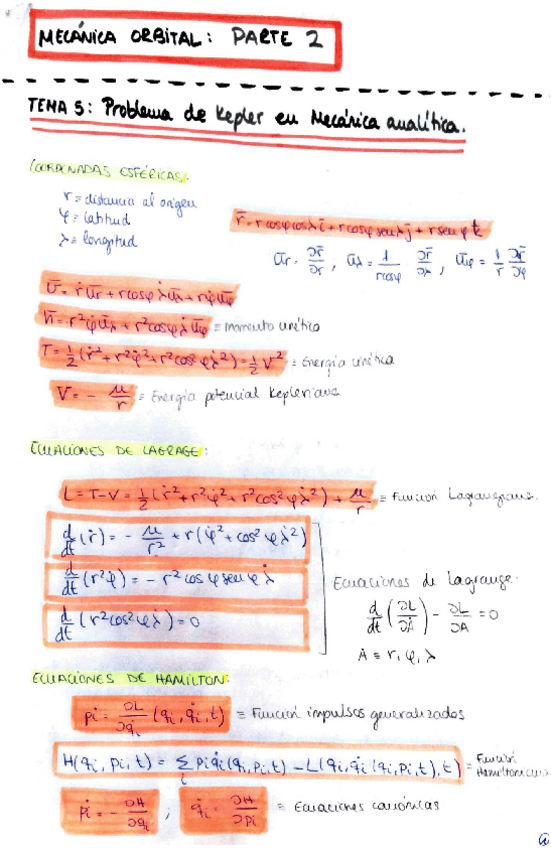 MECÁNICA ORBITAL: PARTE 2
TEMA 5: Problema de Kepler en Mecánica analítica.
COORDENADAS ESFÉRICAS:
r ≡ distancia al origen
φ ≡ latitud
λ ≡ longitud
r̄ = r cosφ cosλ ī + r cosφ senλ j̄ + r senφ k̄
ūr = ∂r̄/∂r , ūλ = 1/(r cosφ) ∂r̄/∂λ , ūφ = 1/r ∂r̄/∂φ
v̄ = ṙ ūr + r cosφ λ̇ ūλ + r φ̇ ūφ
h̄ = -r² φ̇ ūλ + r² cosφ λ̇ ūφ ≡ momento cinético
T = 1/2 (ṙ² + r² φ̇² + r² cos²φ λ̇²) = 1/2 v² ≡ Energía cinética
V = - μ/r ≡ Energía potencial Kepleriana
ECUACIONES DE LAGRAGE:
L = T-V = 1/2 (ṙ² + r² φ̇² + r² cos²φ λ̇²) + μ/r ≡ Función Lagrangiana.
d/dt (ṙ) = - μ/r² + r(φ̇² + cos²φ λ̇²)
d/dt (r² φ̇) = - r² cosφ senφ λ̇
d/dt (r² cos²φ λ̇) = 0
Ecuaciones de Lagrange:
d/dt (∂L/∂Ȧ) - ∂L/∂A = 0
A ≡ r, φ, λ
ECUACIONES DE HAMILTON:
pi = ∂L/∂q̇i (qi, q̇i, t) ≡ Función impulsos generalizados
H(qi, pi, t) = Σi pi q̇i (qi, pi, t) - L(qi, q̇i (qi, pi, t), t) ≡ Función Hamiltoniana
ṗi = - ∂H/∂qi ; q̇i = ∂H/∂pi ≡ Ecuaciones canónicas